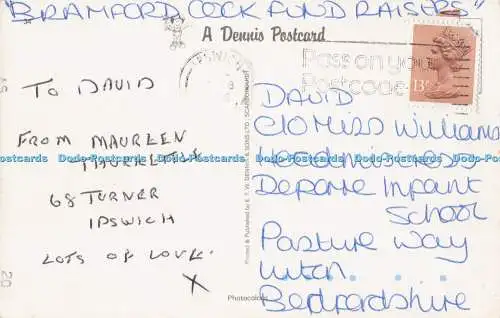 "BRAMFORD COCK FUND RAISERS"
A Dennis Postcard
IPSWICH
Pass on your
Postcode
13
TO DAVID
FROM MAUREEN
68 TURNER
IPSWICH
LOTS OF LOVE.
X
Printed & Published by E. T. W. DENNIS & SONS LTD., SCARBOROUGH
Photocolour
DAVID
C/O MISS Williams
Headmistress
Depare Infant
School
Pasture Way
Luton
Bedfordshire
Dodo-Postcards Dodo-Postcards Dodo-Postcards Dodo-Postcards Dodo-Postcards